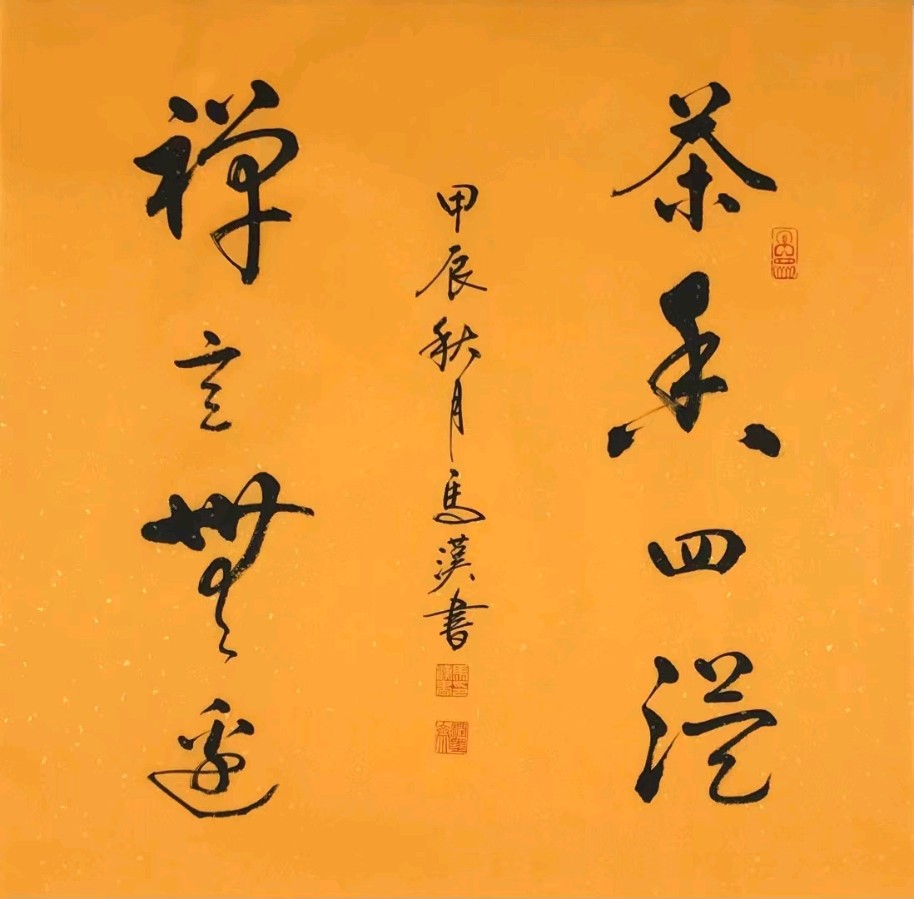 茶香四溢
禅意無邊
甲辰秋月馬漢書